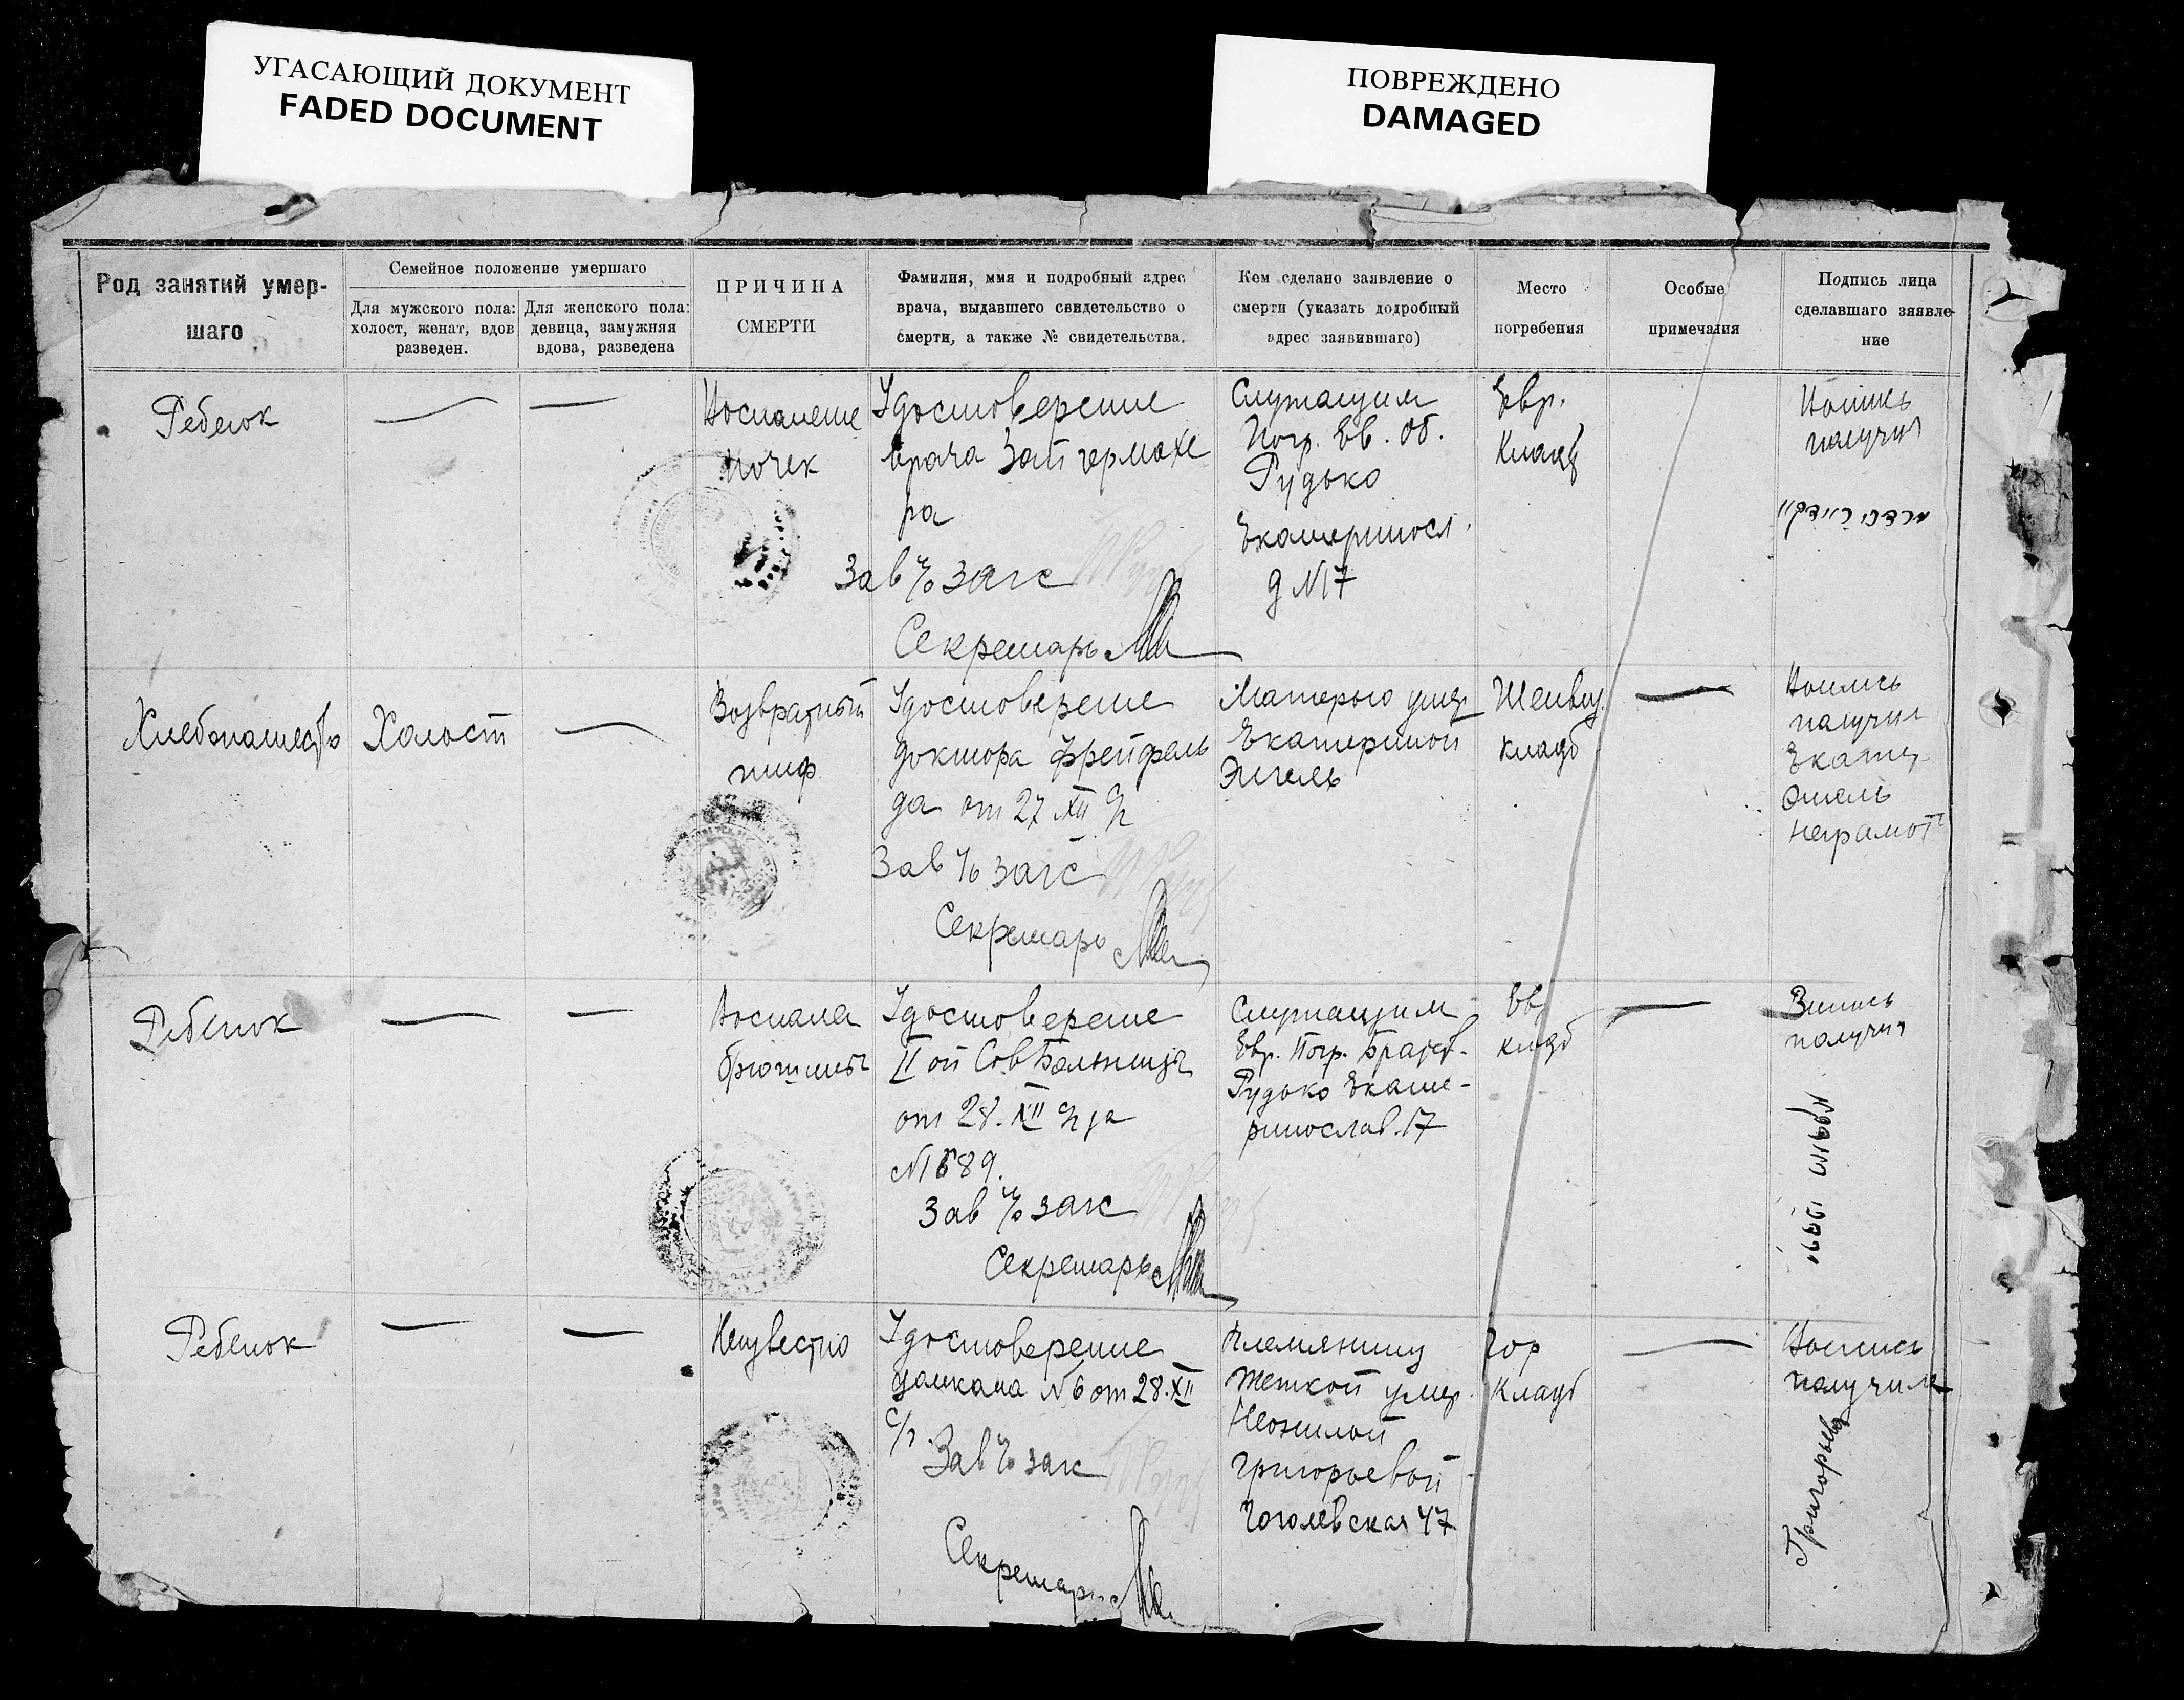 УГАСАЮЩИЙ ДОКУМЕНТ
FADED DOCUMENT
ПОВРЕЖДЕНО
DAMAGED
Род занятий умер-
шаго
Семейное положение умершаго
Для мужского пола:
холост, женат, вдов
разведен.
Для женского пола:
девица, замужняя
вдова, разведена
ПРИЧИНА
СМЕРТИ
Фамилия, имя и подробный адрес
врача, выдавшего свидетельство о
смерти, а также № свидетельства.
Кем сделано заявление о
смерти (указать додробный
адрес заявившаго)
Место
погребения
Особые
примечания
Подпись лица
сделавшаго зяявле-
ние
Ребенок
Воспаление
почек
Удостоверение
врача Зантгермахе
ра
Зав п/о загс
Секретарь
Служащим
Погр. Ев. Об.
Рудько
Екатериносл.
д №17
Евр.
Кладб
Выпись
получил
Хлебопашество
Холост
Возвратный
тиф
Удостоверение
доктора Фрейфель
да от 27 XII с/г
Зав п/о загс
Секретарь
Матерью умер
Екатериной
Эмель
кладб
Выпись
получил
Екатер
Эмель
неграмот
Ребенок
Воспале
брюшины
Удостоверение
II ой Сов Больницы
от 28. XII с/г за
№689.
Зав п/о загс
Секретарь
Служащим
Евр. Погр. Братст.
Рудько Екате-
ринослав. 17
Ев
кладб
Выпись
получил
Ребенок
Неизвестно
Удостоверение
домкома №6 от 28.XII
с/г.
Зав п/о загс
Секретарь
Племянницу
теткой умер.
Григорьевой
Гоголевская 47
Гор
Кладб
Выпись
получила
Григорьева